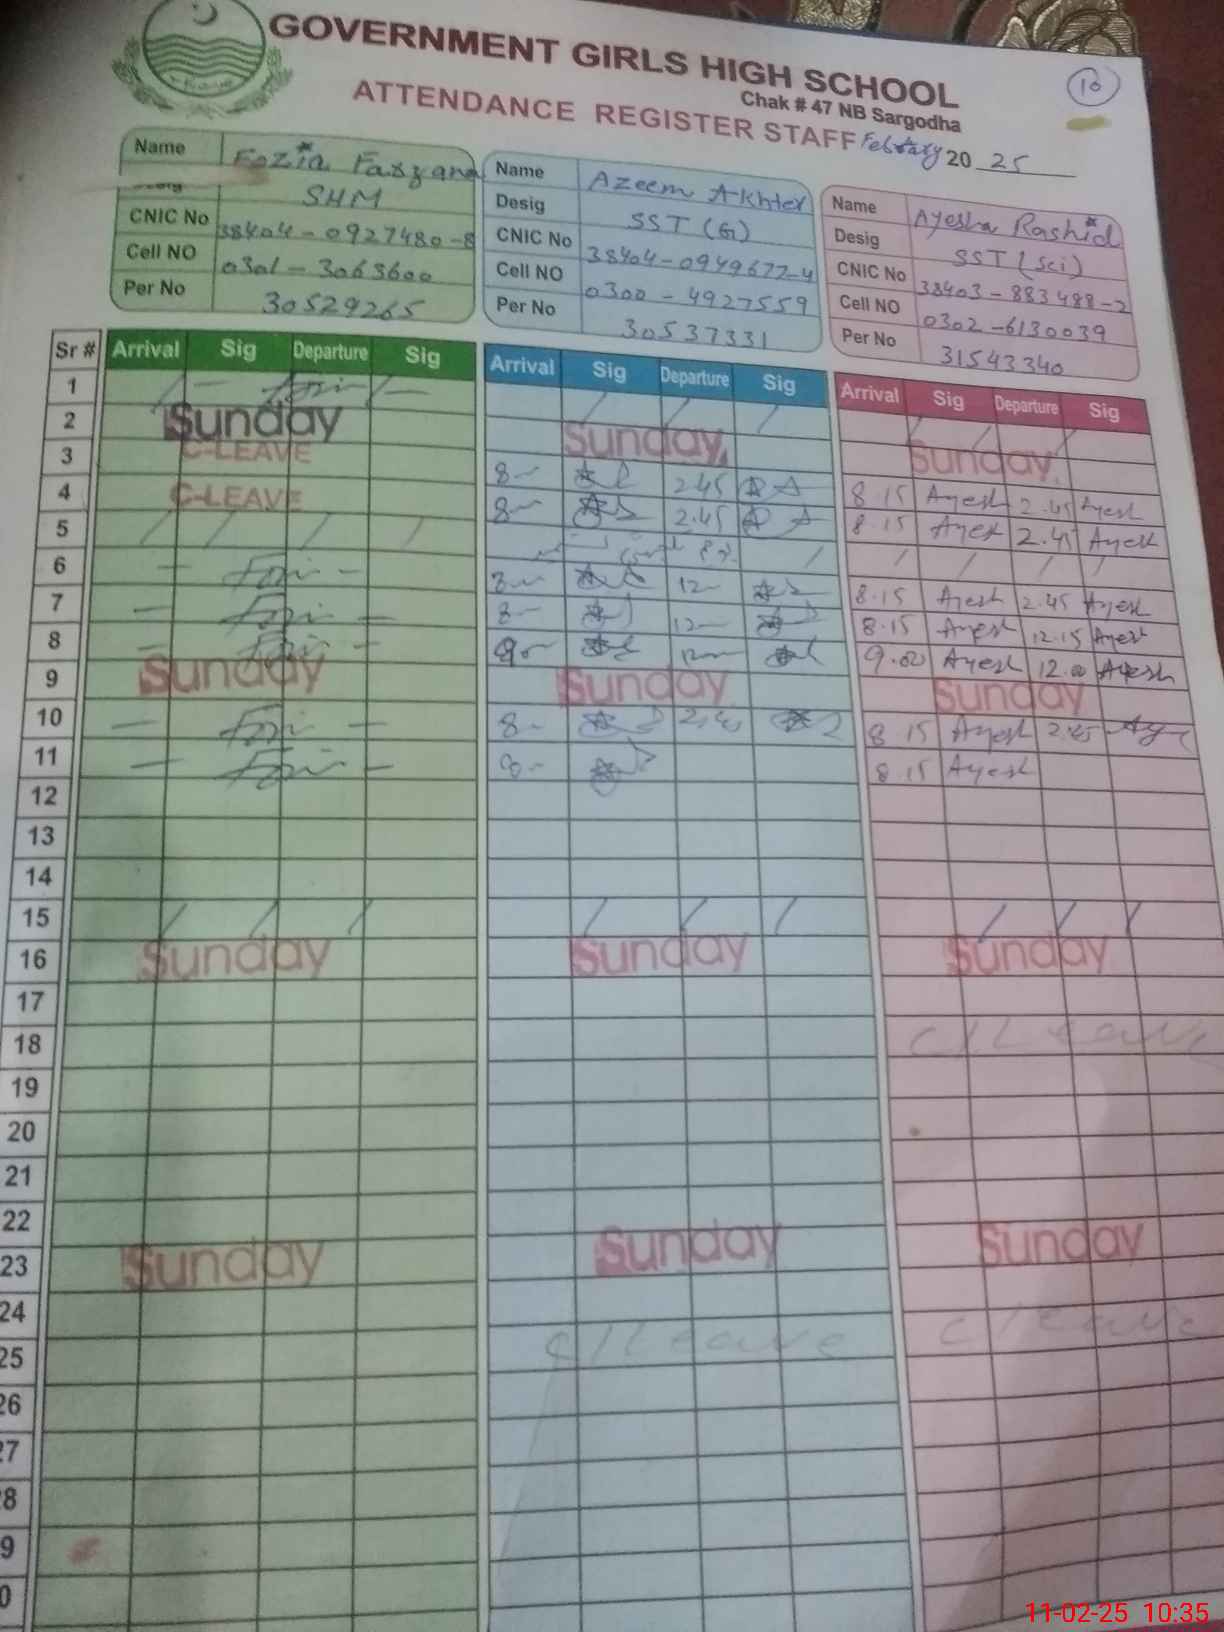 GOVERNMENT GIRLS HIGH SCHOOL
10
Chak # 47 NB Sargodha
ATTENDANCE REGISTER STAFF February 20 25
Name Fozia Farzana
SHM
CNIC No 38404-0927480-8
Cell NO 0301-3063600
Per No 30529265
Name Azeem Akhter
Desig SST (G)
CNIC No 38404-0949677-4
Cell NO 0300-4927559
Per No 30537331
Name Ayesha Rashid
Desig SST (Sci)
CNIC No 38403-883488-2
Cell NO 0302-6130039
Per No 31543340
Sr # Arrival Sig Departure Sig Arrival Sig Departure Sig Arrival Sig Departure Sig
1
2 Sunday Sunday Sunday
3 C-LEAVE 8 2.45 8.15 Ayesh 2.45 Ayesh
4 C-LEAVE 8 2.45 8.15 Ayesh 2.45 Ayesh
5
6 8 12 8.15 Ayesh 2.45 Ayesh
7 8 12 8.15 Ayesh 12.15 Ayesh
8 12 9.00 Ayesh 12.00 Ayesh
9 Sunday Sunday Sunday
10 8 2.45 8.15 Ayesh 2.45
11 8.15 Ayesh
12
13
14
15
16 Sunday Sunday Sunday
17
18 C/Leave
19
20
21
22
23 Sunday Sunday Sunday
24
25 C/Leave C/Leave
26
27
8
9
0
11-02-25 10:35